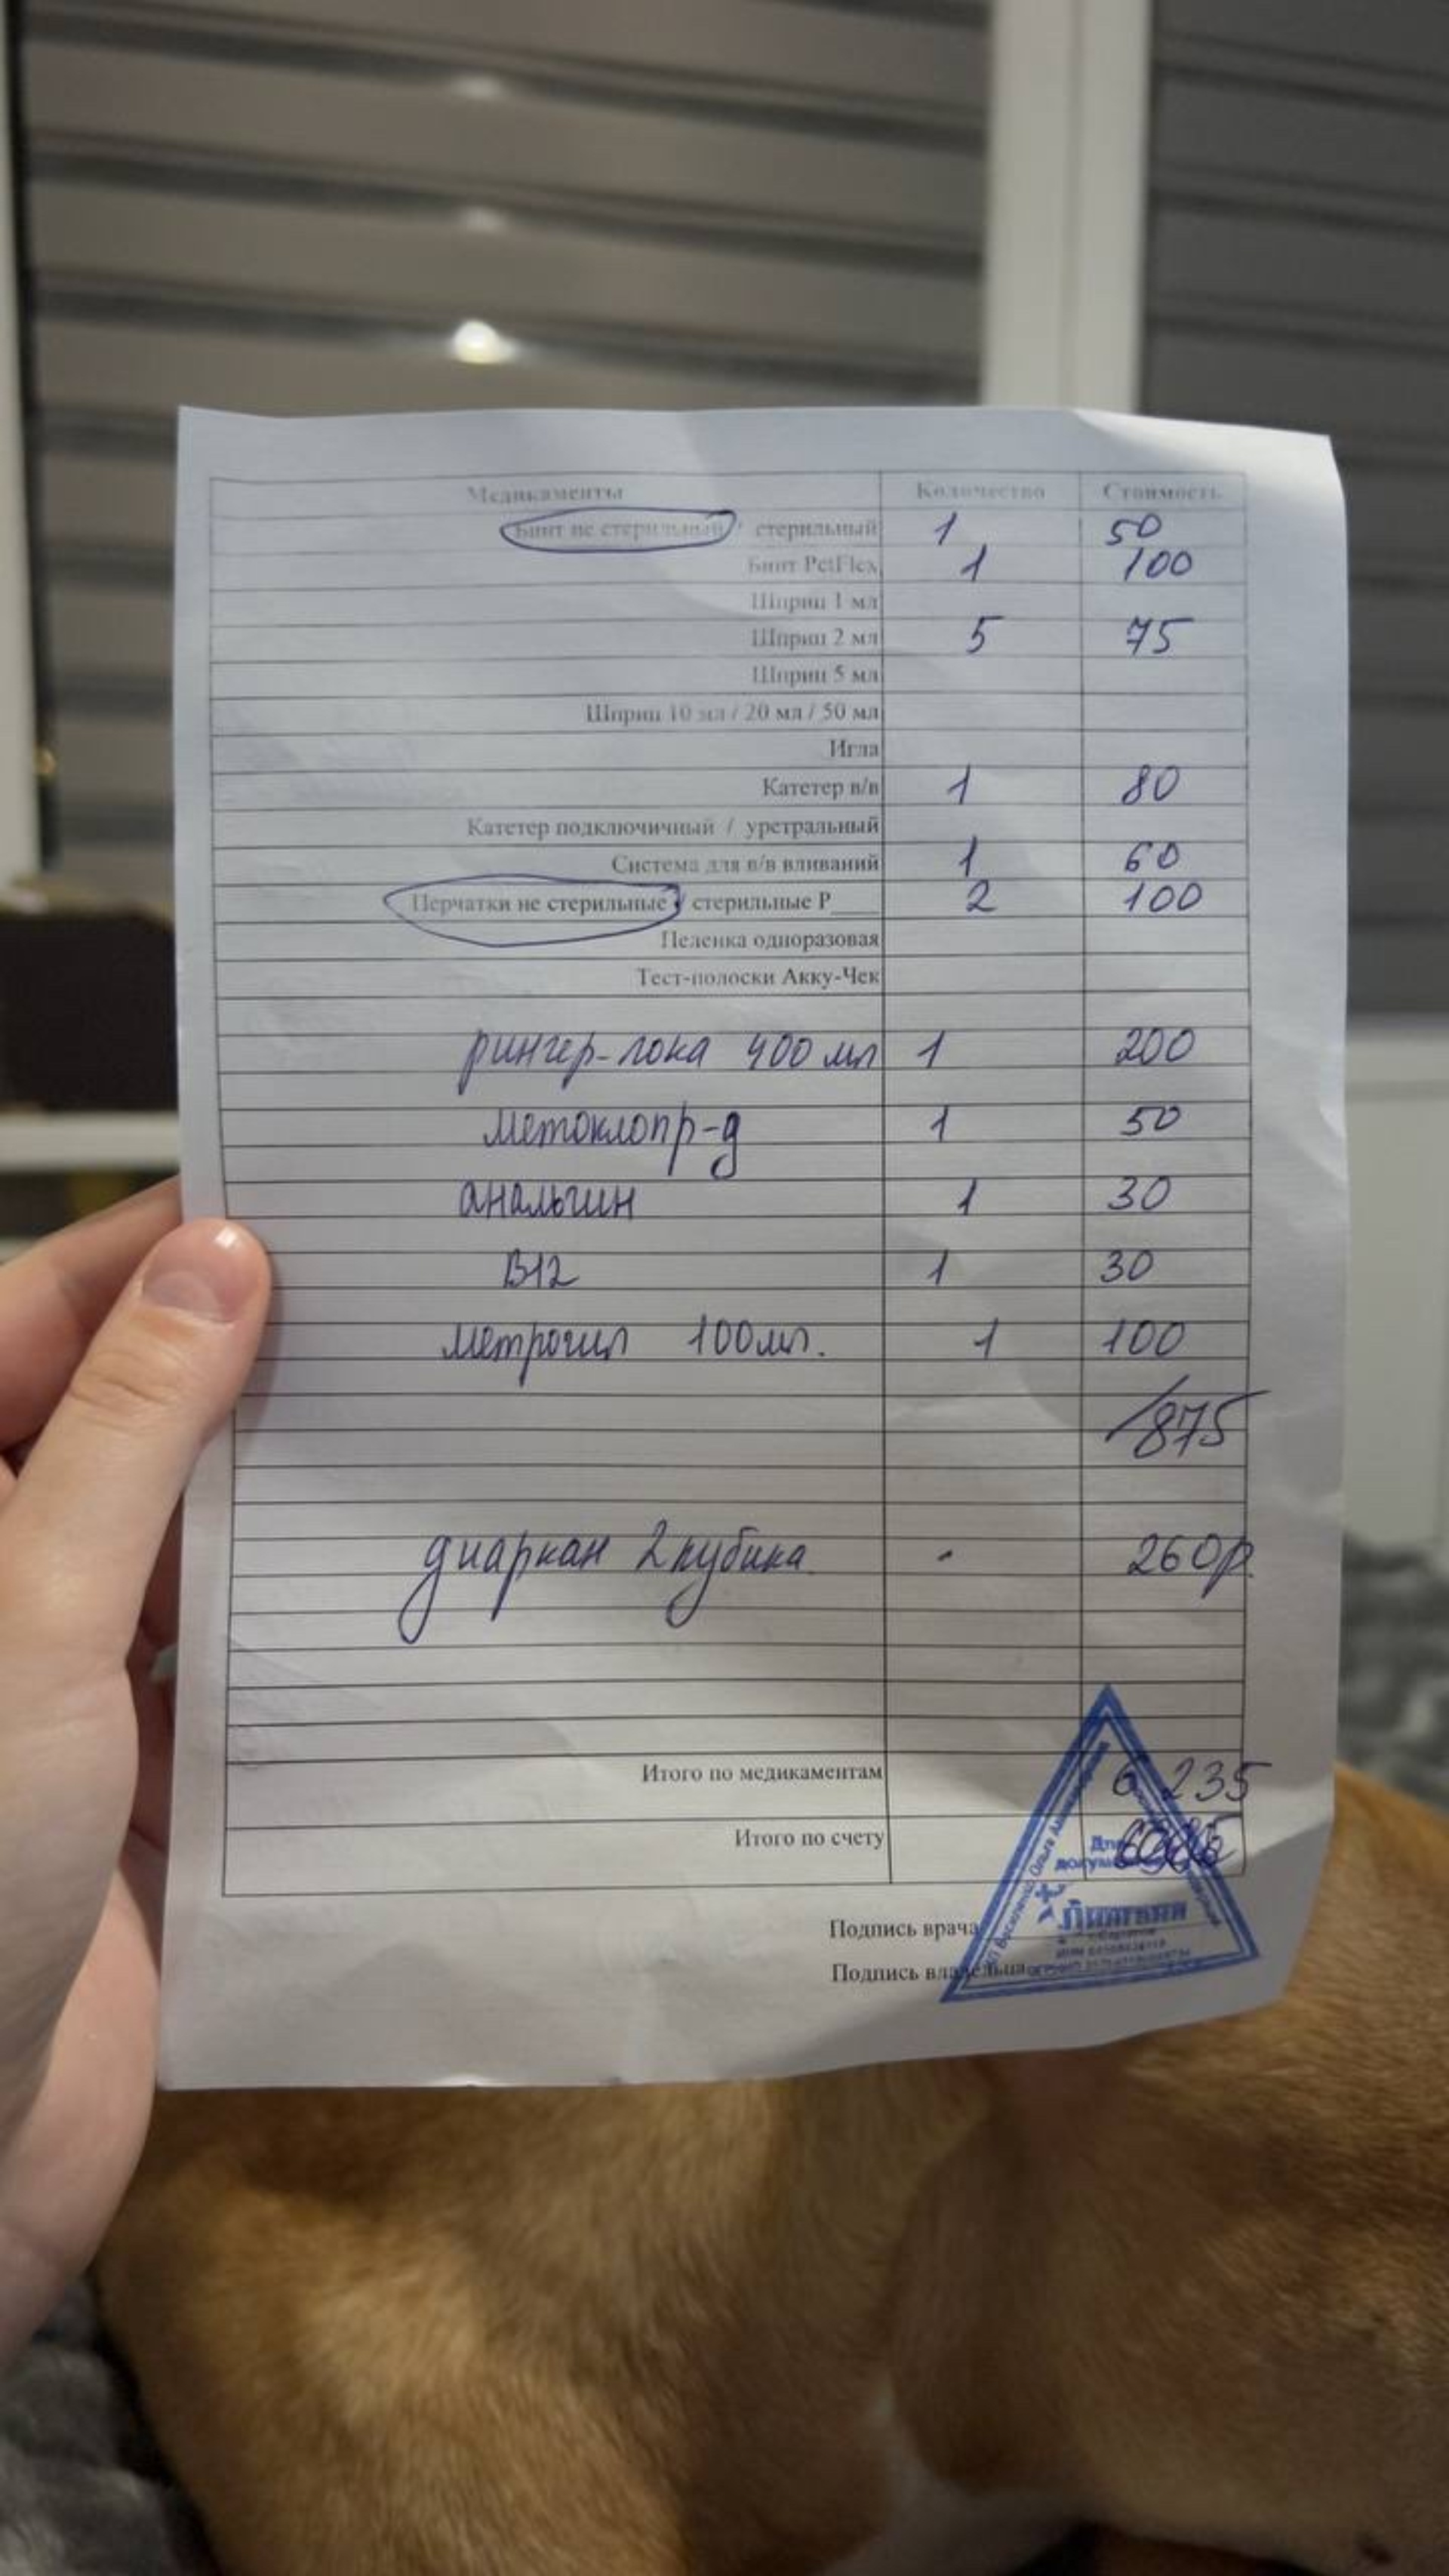 Медикаменты Количество Стоимость
Бинт не стерильный / стерильный 1 50
Бинт PetFlex 1 100
Шприц 1 мл
Шприц 2 мл 5 75
Шприц 5 мл
Шприц 10 мл / 20 мл / 50 мл
Игла
Катетер в/в 1 80
Катетер подключичный / уретральный
Система для в/в вливаний 1 60
Перчатки не стерильные / стерильные Р____ 2 100
Пеленка одноразовая
Тест-полоски Акку-Чек
рингер-лока 400 мл 1 200
метоклопр-д 1 50
анальгин 1 30
В12 1 30
метрогил 100мл. 1 100
/875
диаркан 2 кубика - 260р.
Итого по медикаментам 6 235
Итого по счету
Для
Подпись врача
Подпись владельца